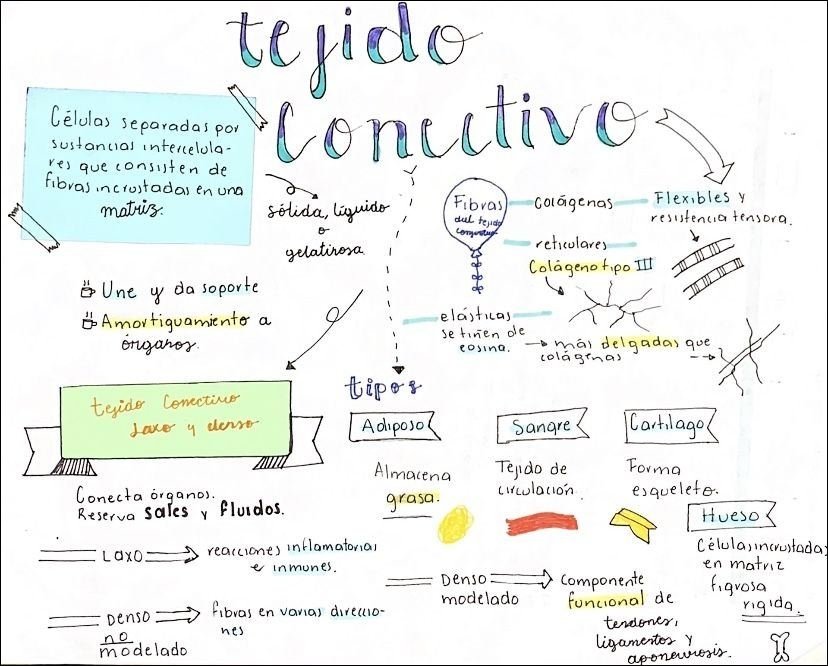 tejido
conectivo
Células separadas por
sustancias intercelula-
res que consisten de
fibras incrustadas en una
matriz.
sólida, líquido
o
gelatinosa
Une y da soporte
Amortiguamiento a
órganos.
Fibras
del tejido
conjuntivo
colágenas
Flexibles y
resistencia tensora.
reticulares
Colágeno tipo III
elásticas
se tiñen de
eosina.
más delgadas que
colágenas
tejido conectivo
laxo y denso
Conecta órganos.
Reserva sales y fluidos.
Laxo
reacciones inflamatorias
e inmunes.
Denso
no
modelado
fibras en varias direccio-
nes
tipos
Adiposo
Almacena
grasa.
Sangre
Tejido de
circulación.
Cartílago
Forma
esqueleto.
Hueso
Células incrustadas
en matriz
figrosa
rigida.
Denso
modelado
Componente
funcional de
tendones,
ligamentos y
aponeurosis.